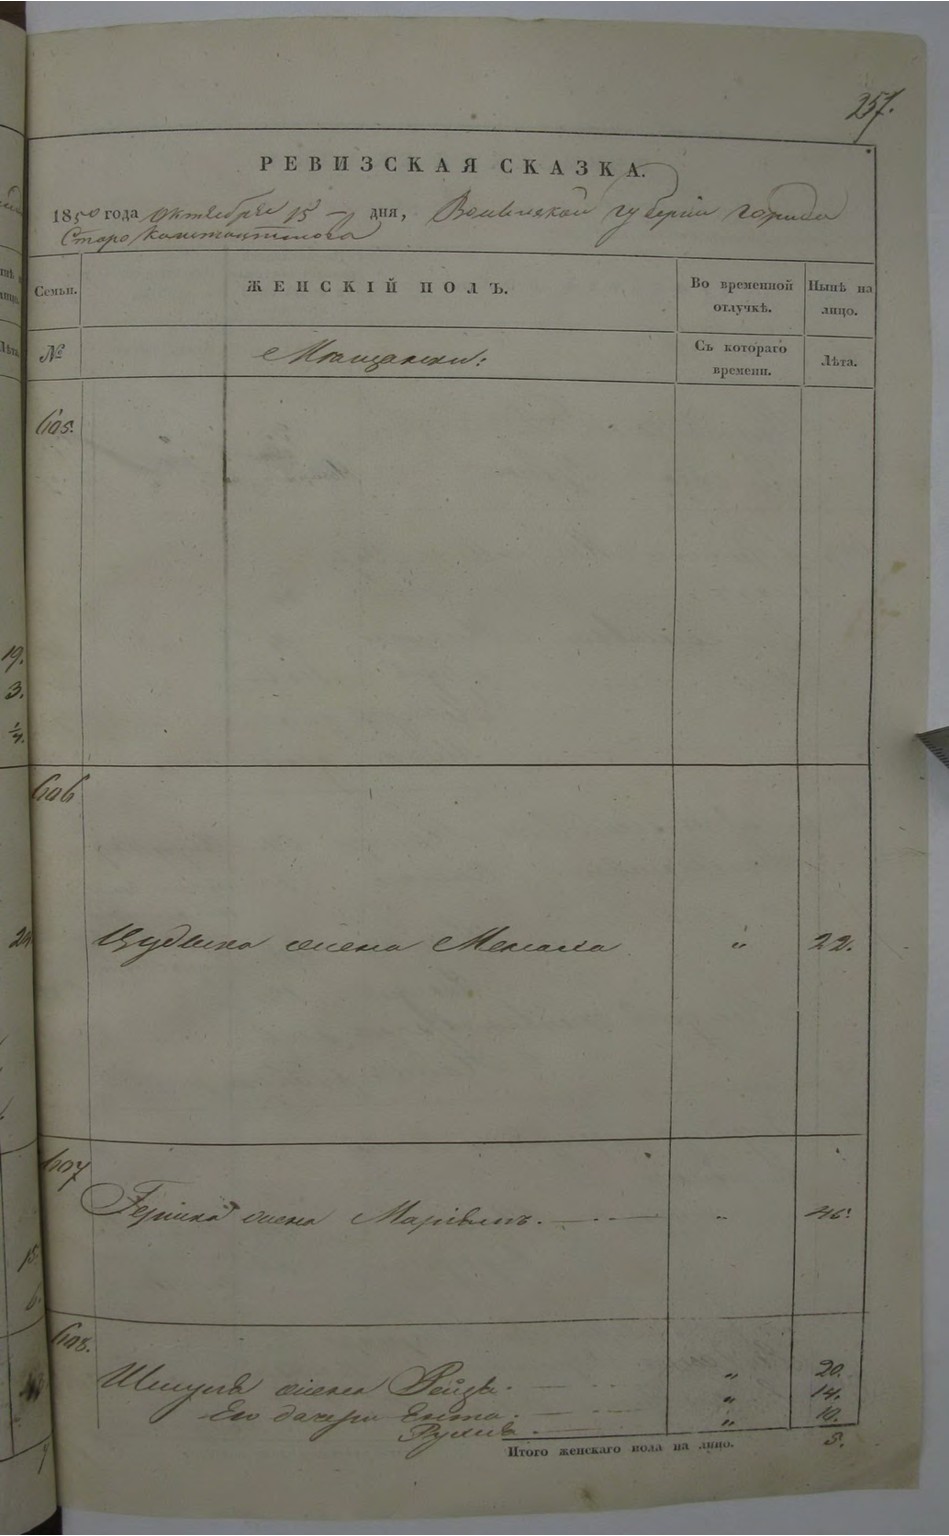 257.
РЕВИЗСКАЯ СКАЗКА.
1850 года Октября 15 дня, Волынской губернии города
Старо Константинова
Семьи. ЖЕНСКІЙ ПОЛЪ. Во временной отлучкѣ. Нынѣ на лицо.
№ Мѣщанки: Съ котораго времени. Лѣта.
605.
19.
3.
606
жена 〃 22.
607
жена 46.
608.
жена Рейзя. 〃 20.
Его дочери Ента. 〃 14.
〃 10.
Итого женскаго пола на лицо. 5.